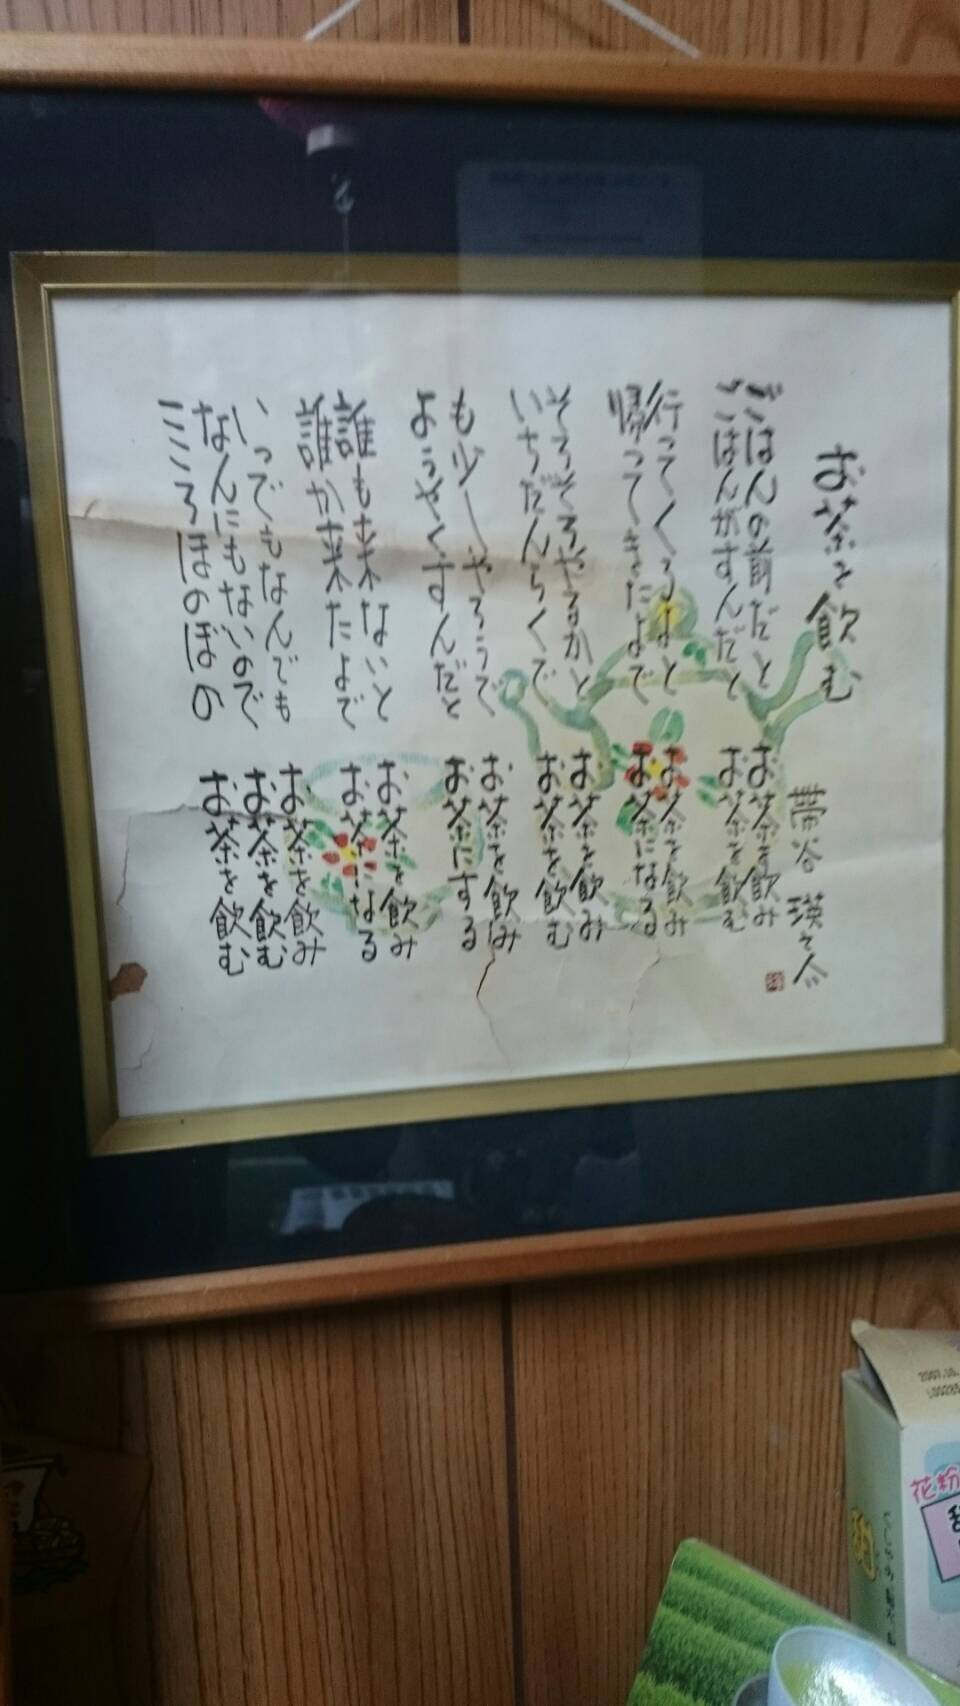 お茶を飲む
谷 瑛々人
ごはんの前だと お茶を飲み
ごはんがすんだと お茶を飲む
行ってくるよと お茶を飲み
帰ってきたよで お茶になる
そろそろやるかと お茶を飲み
いちだんらくで お茶を飲む
も少しやろうで、 お茶を飲み
ようやくすんだと お茶にする
誰も来ないと お茶を飲み
誰か来たよで お茶になる
いつでもなんでも お茶を飲み
なんにもないので、 お茶を飲む
こころほのぼの お茶を飲む
2007.10.
花粉